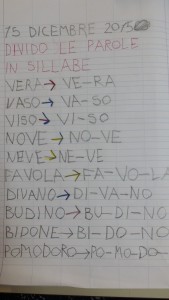 15 DICEMBRE 2015
DIVIDO LE PAROLE
IN SILLABE
VERA→ VE-RA
VASO→ VA-SO
VISO→ VI-SO
NOVE→NO-VE
NEVE→NE-VE
FAVOLA→FA-VO-LA
DIVANO→DI-VA-NO
BUDINO→BU-DI-NO
BIDONE→BI-DO-NO
POMODORO→PO-MO-DO-